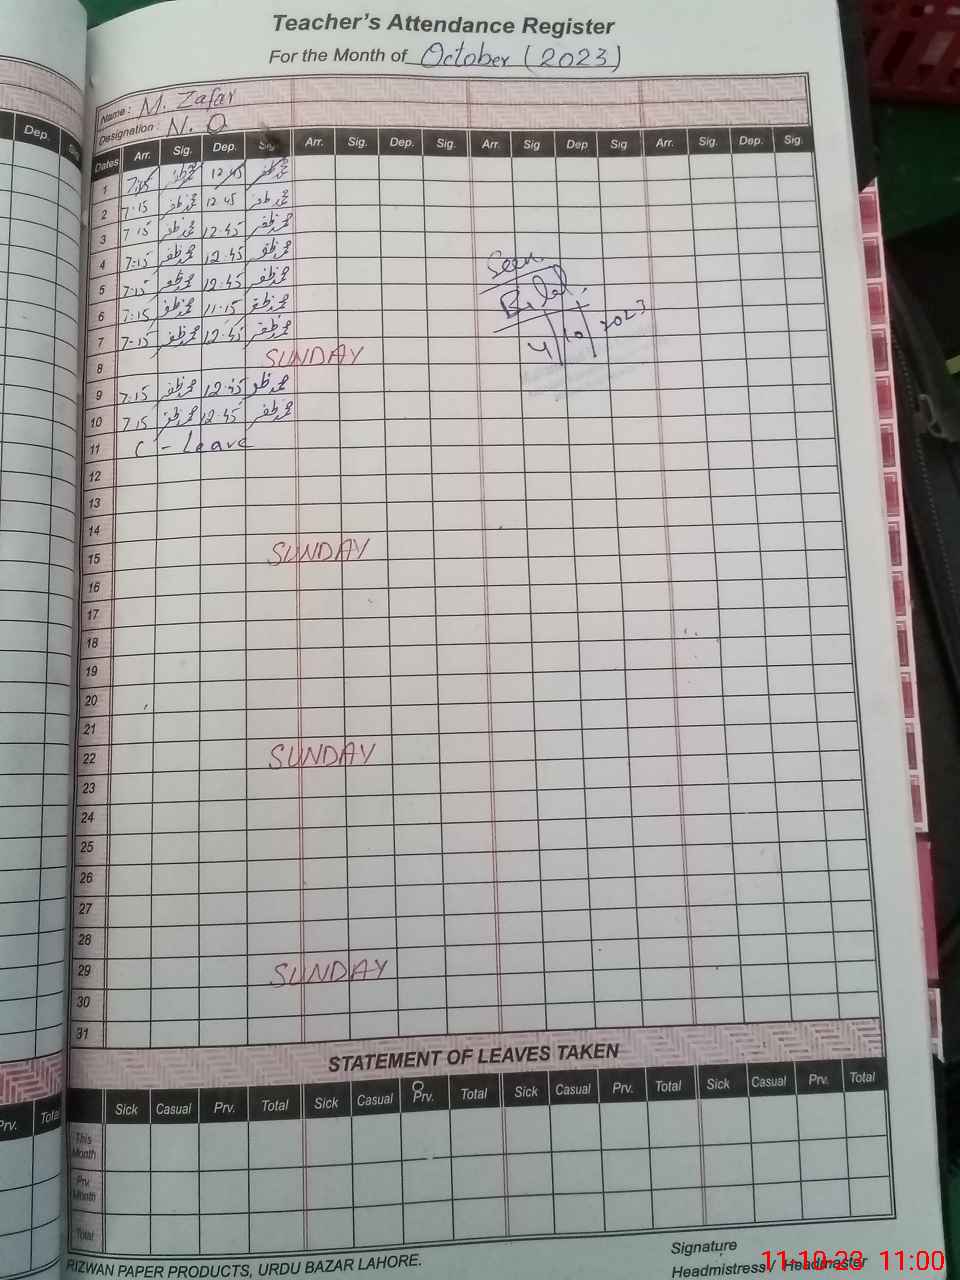 Teacher's Attendance Register
For the Month of October (2023)
Name: M. Zafar
Designation: N. Q
Dep.
Dates Arr. Sig. Dep. Sig. Arr. Sig. Dep. Sig. Arr. Sig Dep Sig Arr. Sig. Dep. Sig.
1 7:15 محمد ظفر 12 45 محمد ظفر
2 7:15 محمد ظفر 12 45 محمد ظفر
3 7 15 محمد ظفر 12:45 محمد ظفر
4 7:15 محمد ظفر 12:45 محمد ظفر
5 7:15 محمد ظفر 12:45 محمد ظفر
6 7:15 محمد ظفر 11:15 محمد ظفر
7 7:15 محمد ظفر 12:45 محمد ظفر
Seen
Bilal
4/10/2023
8 SUNDAY
9 7:15 محمد ظفر 12:45 محمد ظفر
10 7:15 محمد ظفر 12:45 محمد ظفر
11 C - Leave
12
13
14
15 SUNDAY
16
17
18
19
20
21
22 SUNDAY
23
24
25
26
27
28
29 SUNDAY
30
31
STATEMENT OF LEAVES TAKEN
Prv. Total
Sick Casual Prv. Total Sick Casual Prv. Total Sick Casual Prv. Total Sick Casual Prv. Total
This Month
Prv. Month
Total
RIZWAN PAPER PRODUCTS, URDU BAZAR LAHORE.
Signature
Headmistress / Headmaster
11-10-23 11:00